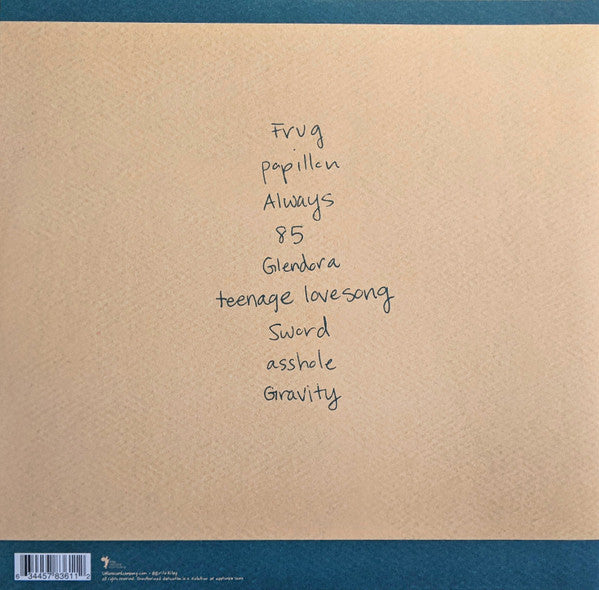 Frug
papillon
Always
85
Glendora
teenage lovesong
Sword
asshole
Gravity
6 34457 83611 2
all rights reserved. Unauthorized duplication is a violation of applicable laws